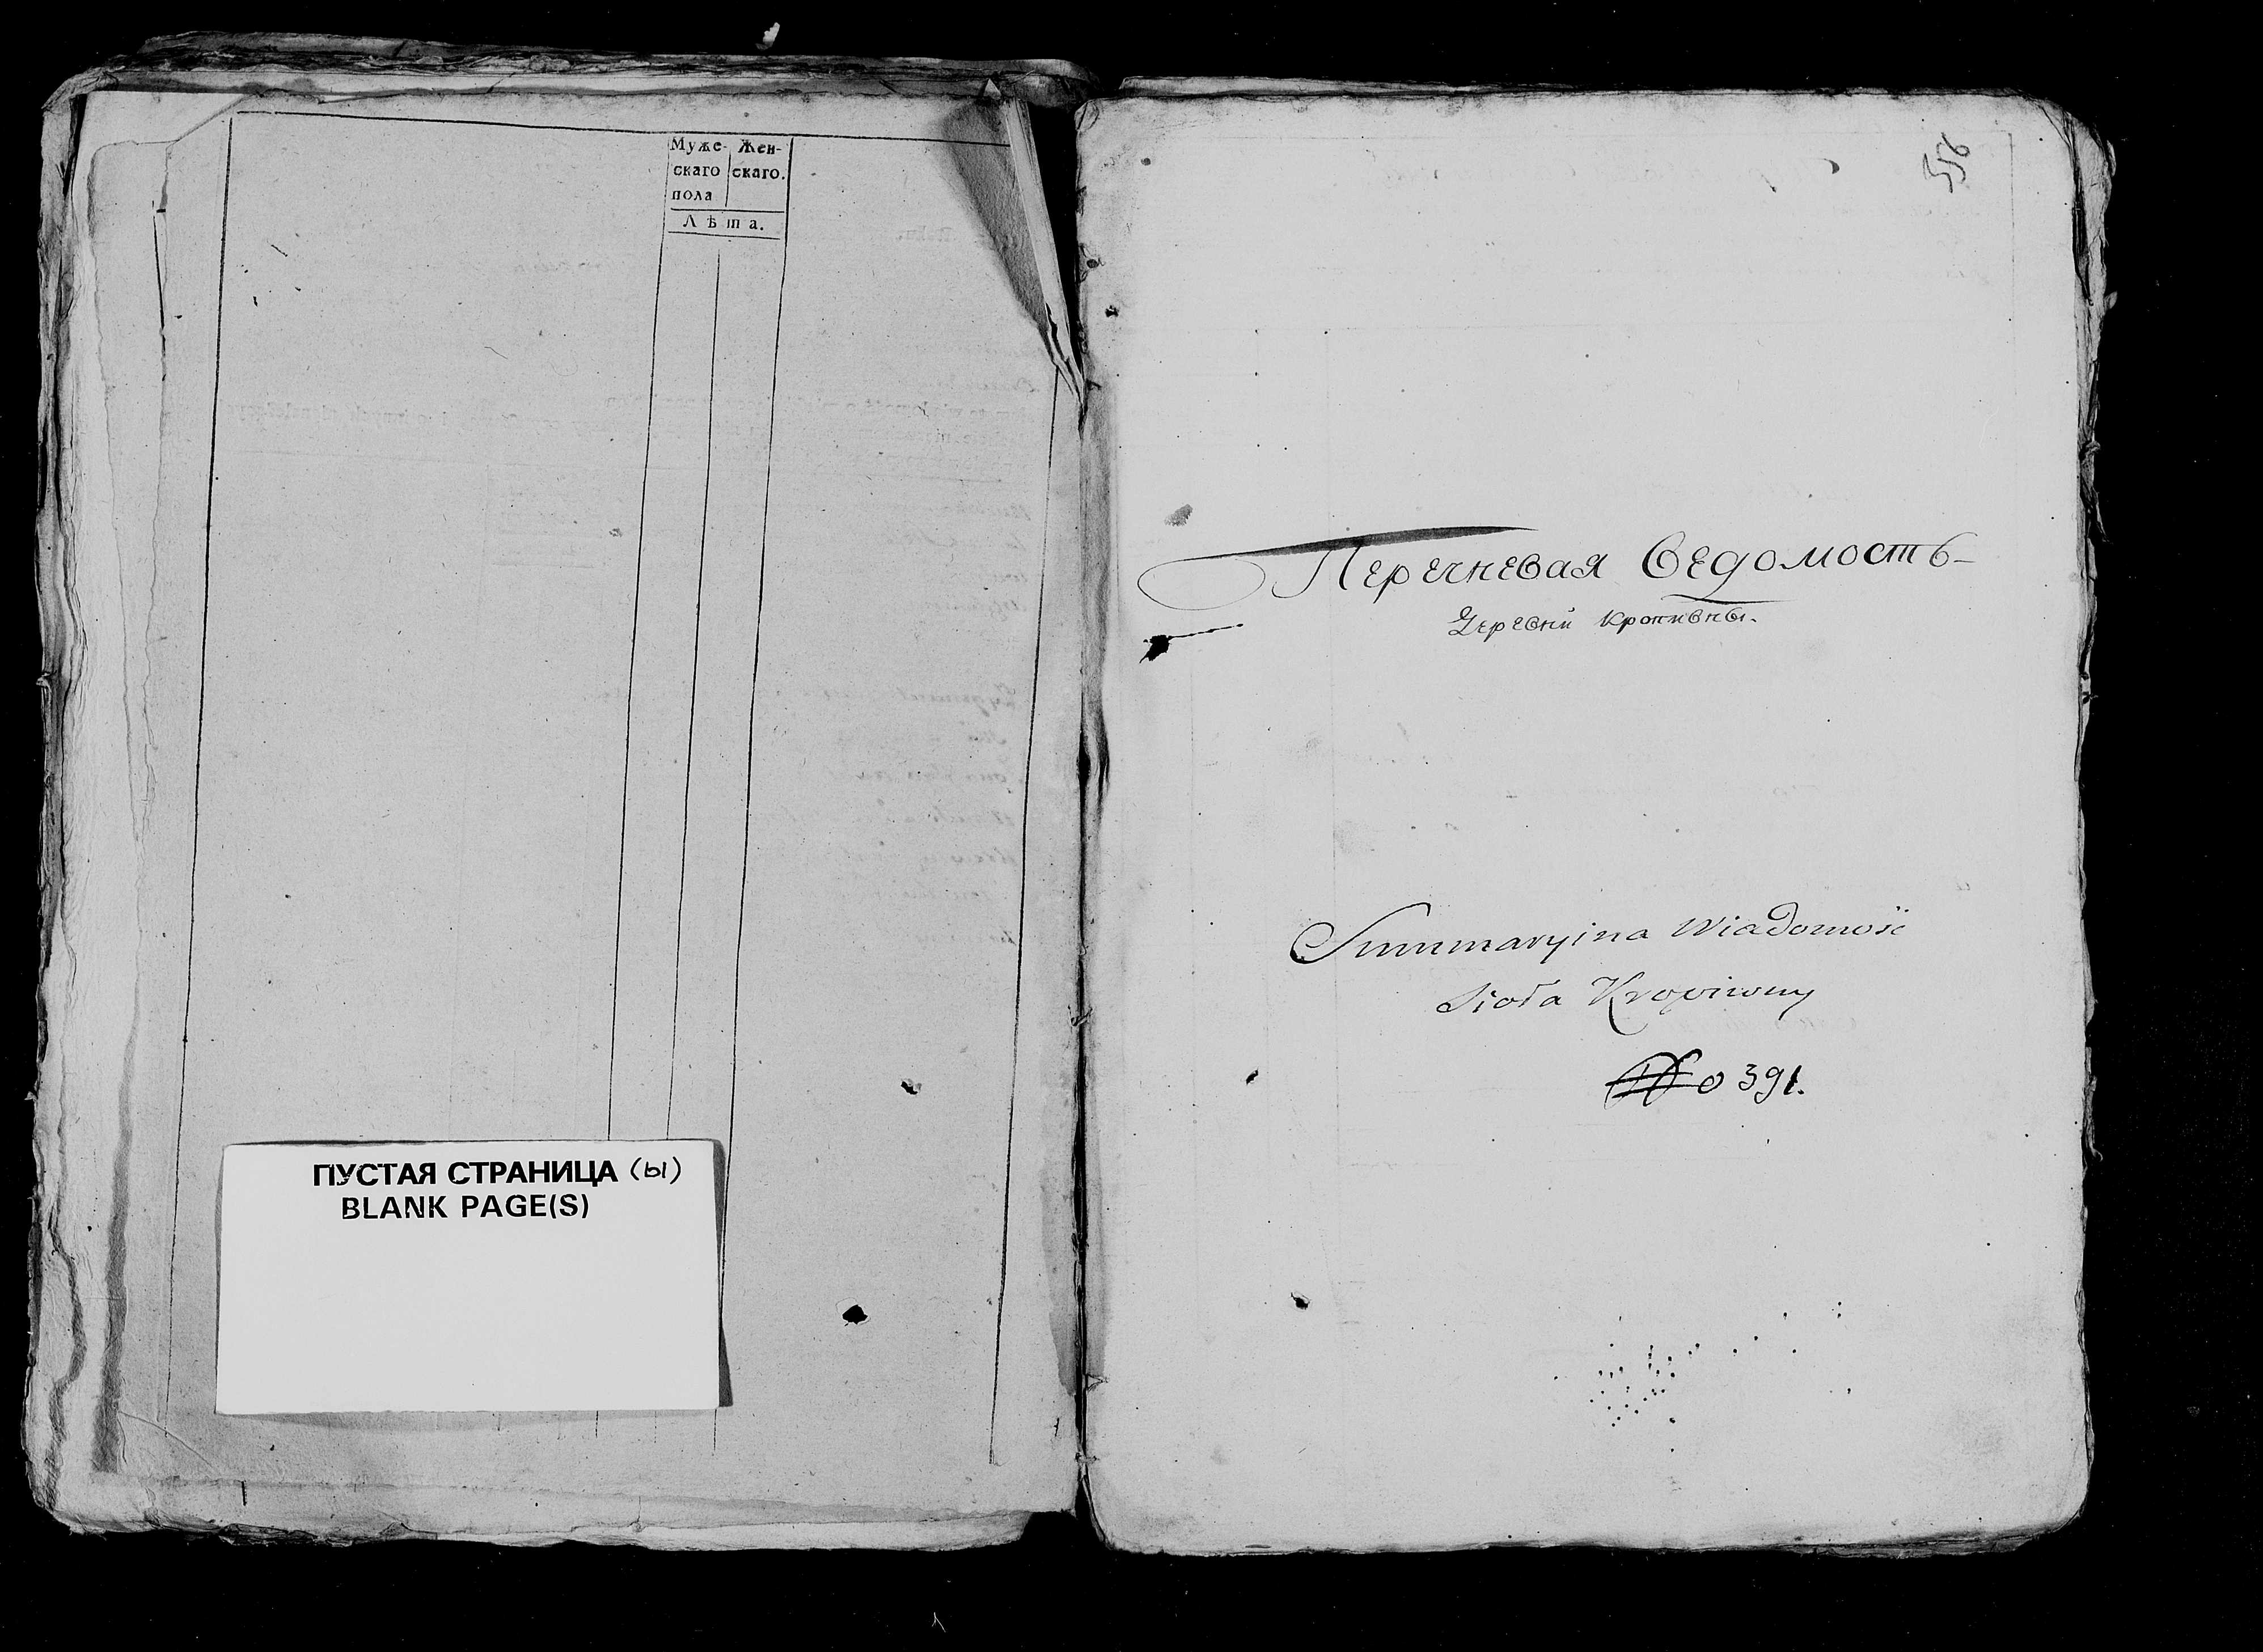 Муже- Жен-
скаго скаго.
пола
Лѣта.
ПУСТАЯ СТРАНИЦА (ы)
BLANK PAGE(S)
556
Перечневая Ведомость
Деревни Кропивны.
Summaryina Wiadomość
Sioła Kropiwny
No 391.